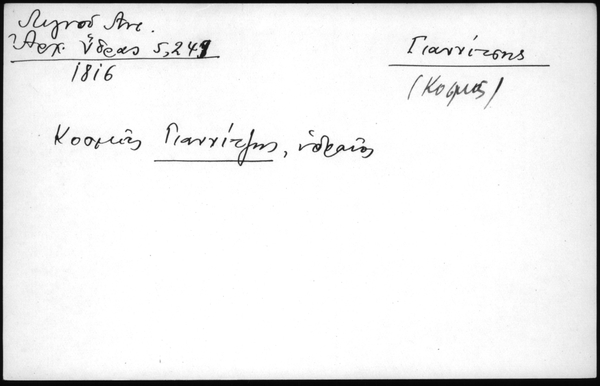 Λιγνοῦ Ἀντ.
Ἀρχ. Ὕδρας 5,241
1816
Γιαννίτσης
(Κοσμᾶς)
Κοσμᾶς Γιαννίτζης, ὑδραῖος